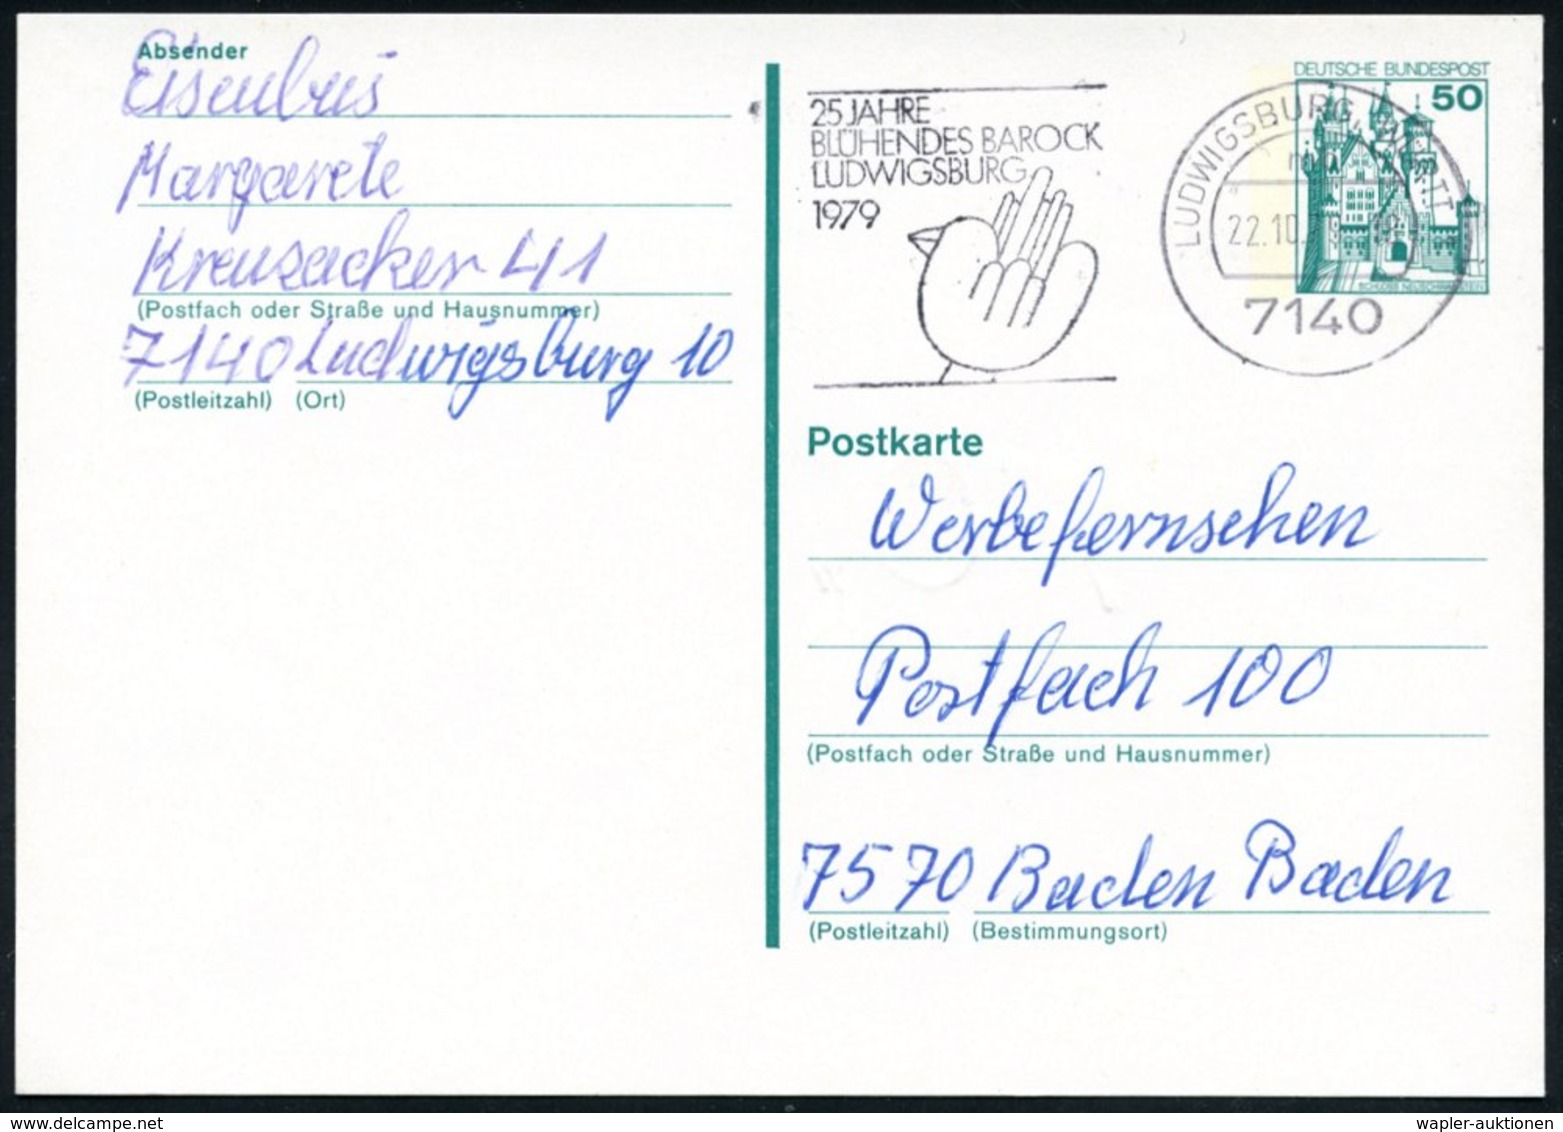 Absender
Margarete
Kreuzäcker 41
(Postfach oder Straße und Hausnummer)
7140 Ludwigsburg 10
(Postleitzahl) (Ort)
25 JAHRE
BLÜHENDES BAROCK
LUDWIGSBURG
1979
LUDWIGSBURG, WÜRTT
22.10.
7140
DEUTSCHE BUNDESPOST
50
SCHLOSS NEUSCHWANSTEIN
Postkarte
Werbefernsehen
Postfach 100
(Postfach oder Straße und Hausnummer)
7570 Baden Baden
(Postleitzahl) (Bestimmungsort)
wapler-auktionen